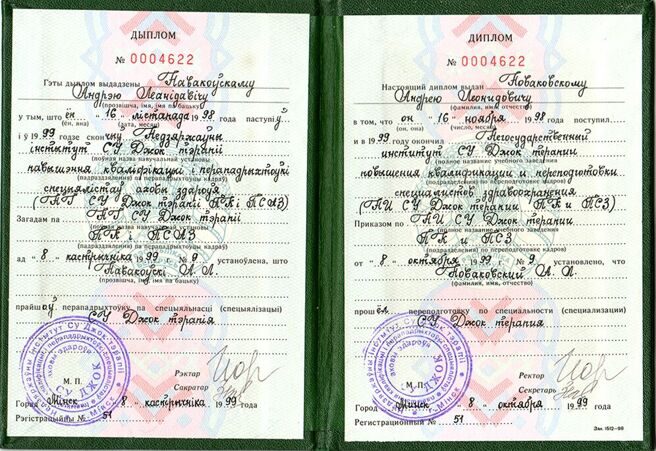 ДЫПЛОМ
№ 0004622
Гэты дыплом выдадзены Павакоўскаму
Андрэю Леанідавічу
(прозвішча, імя, імя па бацьку)
у тым, што ён 16 лістапада 1998 года паступіў
(ён, яна) (дата, месяц)
і ў 1999 годзе скончыў Недзяржаўны
інстытут СУ Джок тэрапіі
(поўная назва навучальнай установы
павышэння кваліфікацыі і перападрыхтоўкі
(падраздзялення) па перападрыхтоўцы кадраў)
спецыялістаў аховы здароўя
СУ Джок тэрапіі ПК і ПСАЗ)
Загадам па СУ Джок тэрапіі
(поўная назва навучальнай установы
ПК і ПСАЗ
(падраздзялення) па перападрыхтоўцы кадраў)
ад 8 кастрычніка 1999 № 9 устаноўлена, што
Павакоўскі А. Л.
(прозвішча, імя, імя па бацьку)
прайшоў перападрыхтоўку па спецыяльнасці (спецыялізацыі)
СУ Джок тэрапія
Рэктар
М. П.
Сакратар
Горад Мінск 8 кастрычніка 1999 года
Рэгістрацыйны № 51
ДИПЛОМ
№ 0004622
Настоящий диплом выдан Поваковскому
Андрею Леонидовичу
(фамилия, имя, отчество)
в том, что он 16 ноября 1998 года поступил
(он, она) (число, месяц)
и в 1999 окончил Негосударственный
институт СУ Джок терапии
(полное название учебного заведения
повышения квалификации и переподготовки
(подразделения) по переподготовке кадров)
специалистов здравоохранения
СУ Джок терапии ПК и ПСЗ)
Приказом по СУ Джок терапии
(полное название учебного заведения
ПК и ПСЗ
(подразделения) по переподготовке кадров)
от 8 октября 1999 г. № 9 установлено, что
Поваковский А. Л.
(фамилия, имя, отчество)
прошёл переподготовку по специальности (специализации)
СУ Джок терапия
Ректор
М. П.
Секретарь
Город Минск 8 октября 1999 года
Регистрационный № 51
Зак. 1512—98